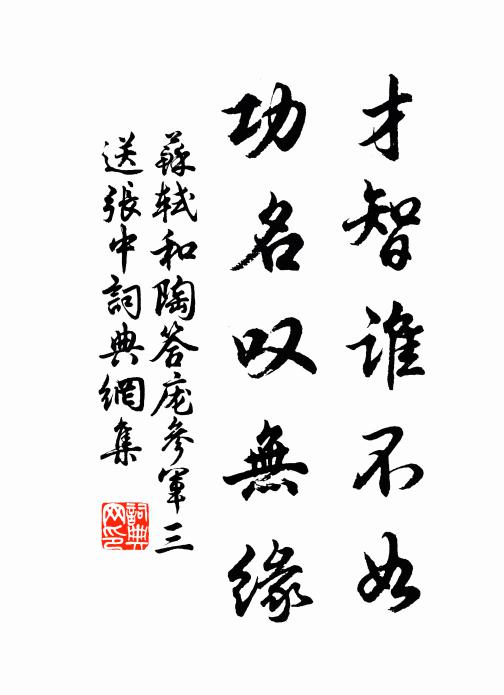 才智誰不如
功名叹無緣
蘇軾和陶答庞參軍三
送張中詞典網集
詞典
网印